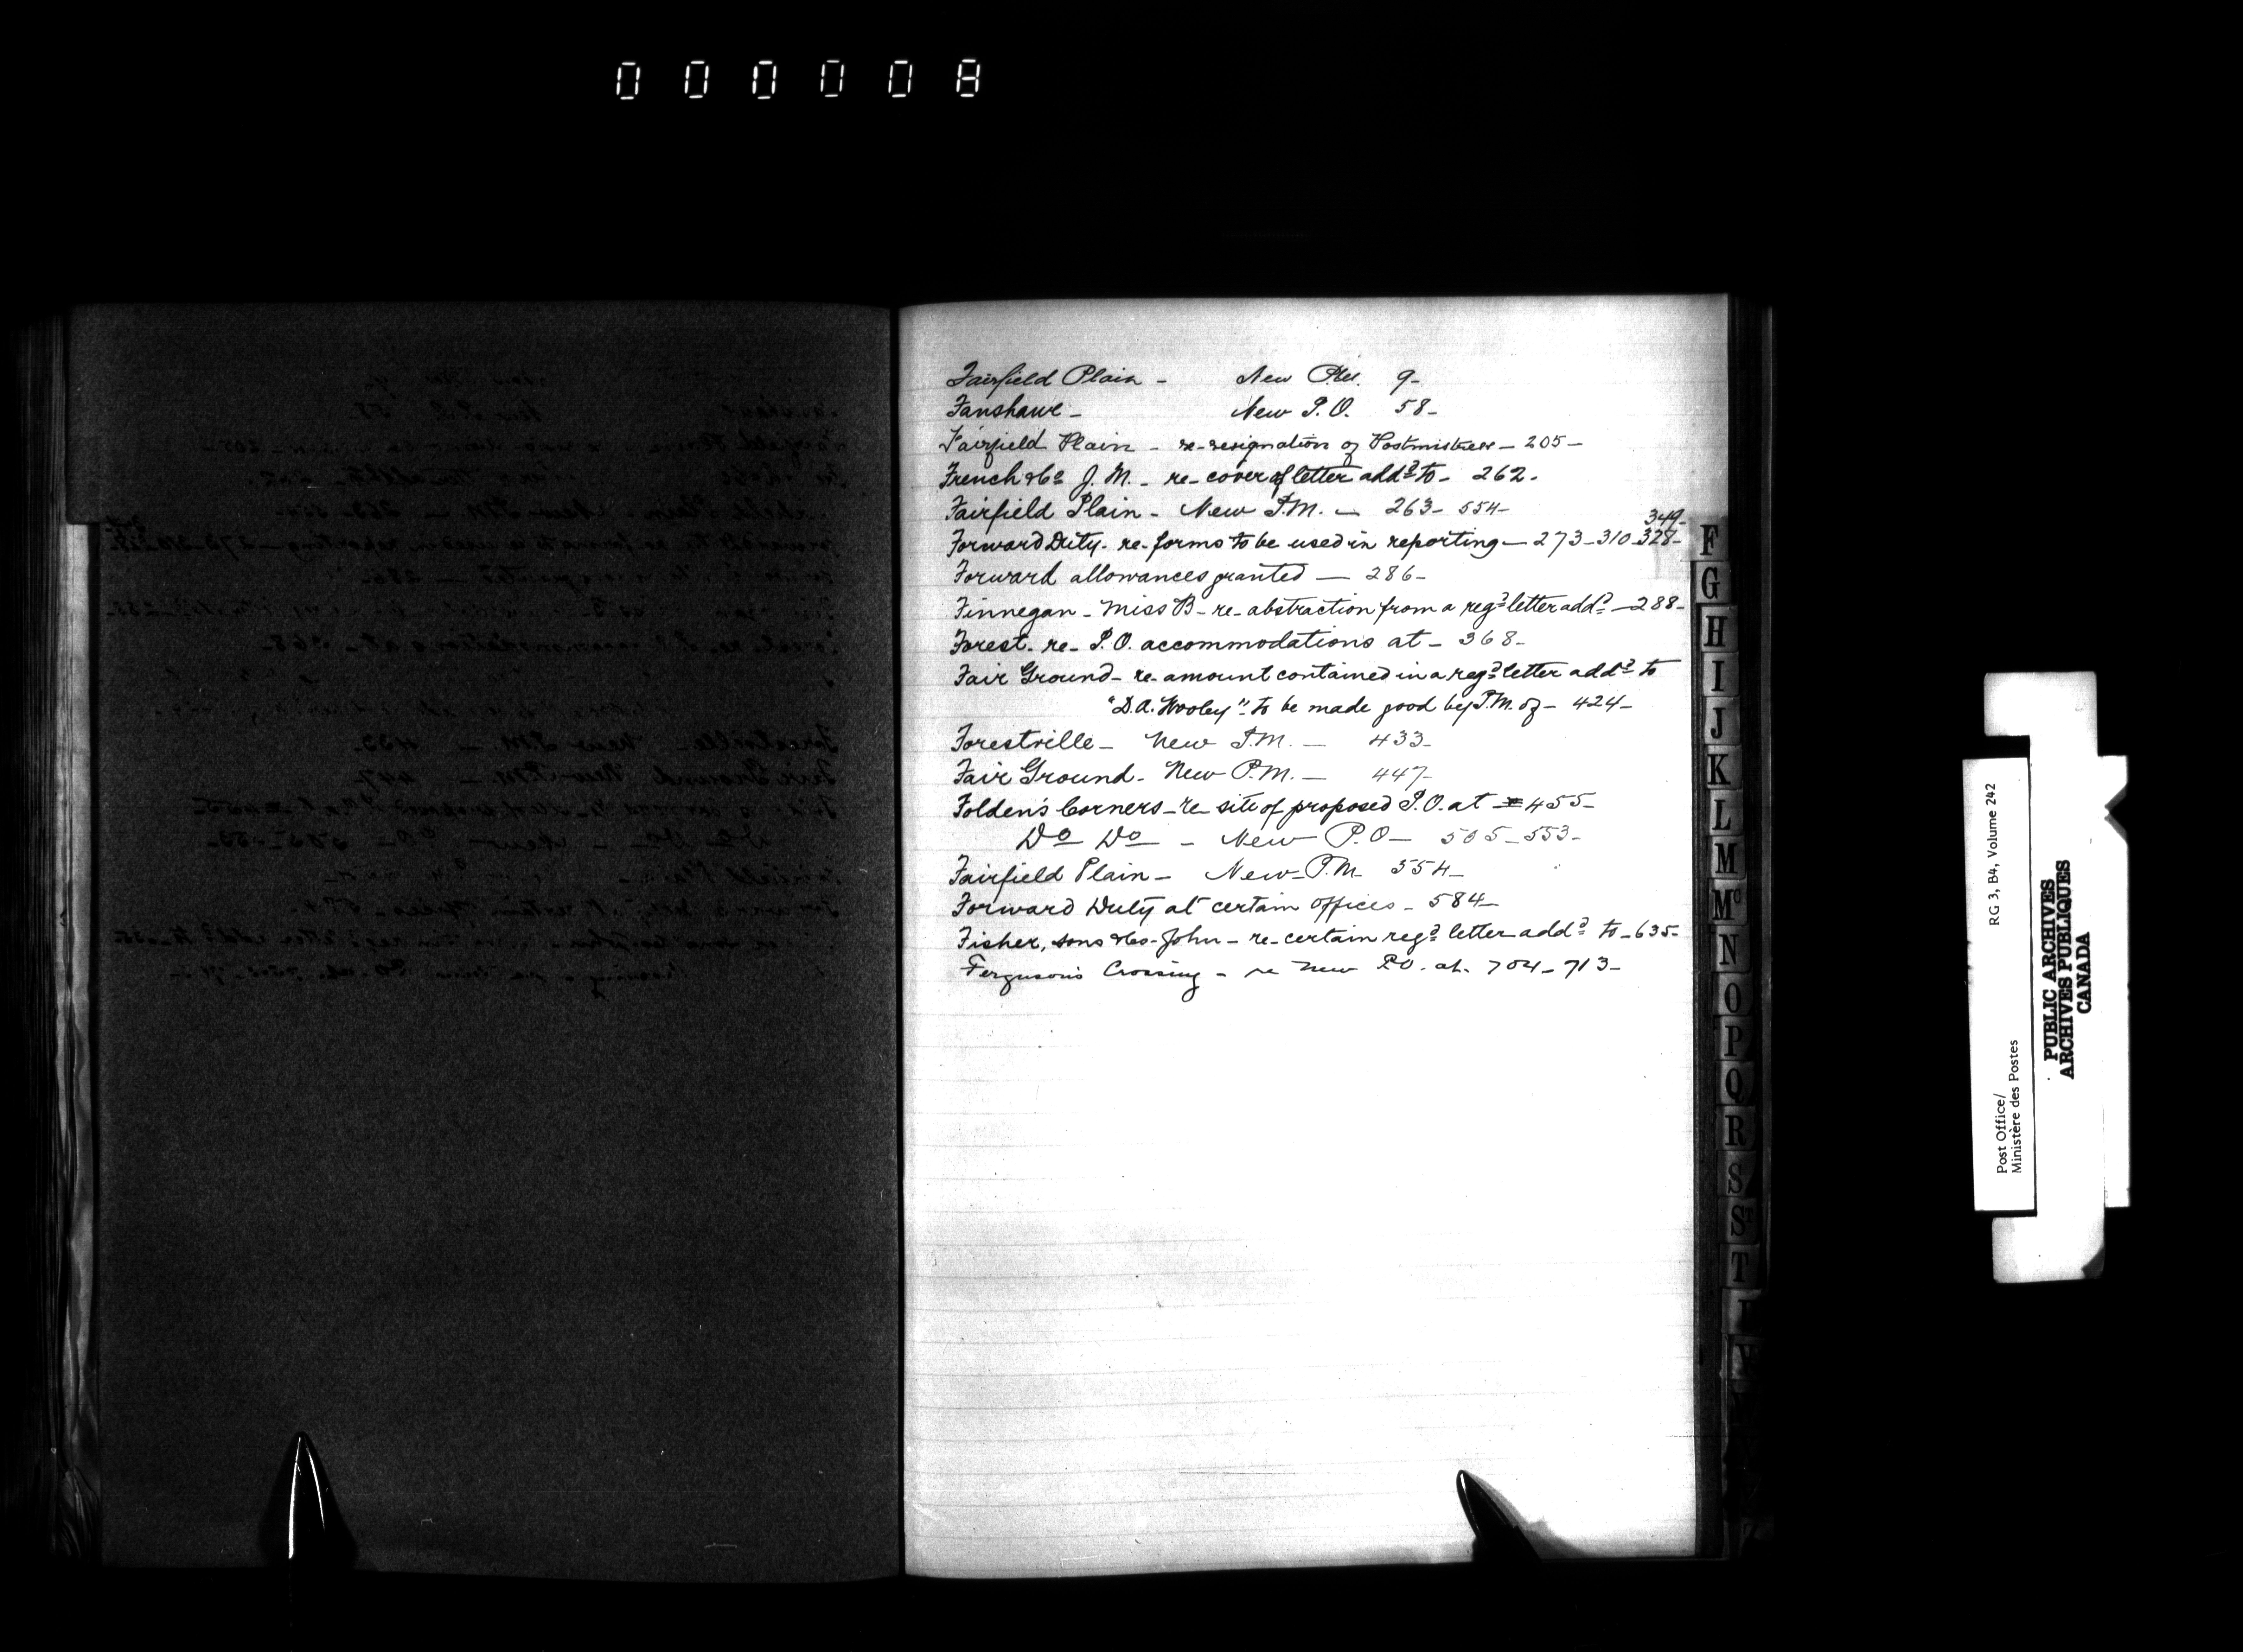 000008
Fairfield Plain - New P.M. 9-
Fanshawe - New P.O. 58-
Fairfield Plain - re-resignation of Postmistress - 205 -
French & Co J. M. - re-cover of letter addd to - 262.
Fairfield Plain - New P.M. - 263- 554-
349-
Forward Duty- re-forms to be used in reporting - 273-310-328-
Forward allowances granted - 286-
Finnegan - Miss B- re-abstraction from a regd letter addd - 288-
Forest- re- P.O. accommodations at - 368-
Fair Ground- re-amount contained in a regd letter addd to
"D.A. Wooley"- to be made good by P.M. of - 424-
Forestville - New P.M. - 433-
Fair Ground- New P.M. - 447-
Folden's Corners - re site of proposed P.O. at - 455-
Do Do - New P.O - 505-553-
Fairfield Plain - New-P.M. 554-
Forward Duty at certain offices - 584-
Fisher, sons & Co-John - re-certain regd letter addd to - 635-
Ferguson's Crossing - re new P.O. at- 704-713-
F
G
H
I
J
K
L
M
Mc
N
O
P
Q
R
S
St
T
Post Office/
Ministère des Postes
RG 3, B4, Volume 242
PUBLIC ARCHIVES
ARCHIVES PUBLIQUES
CANADA